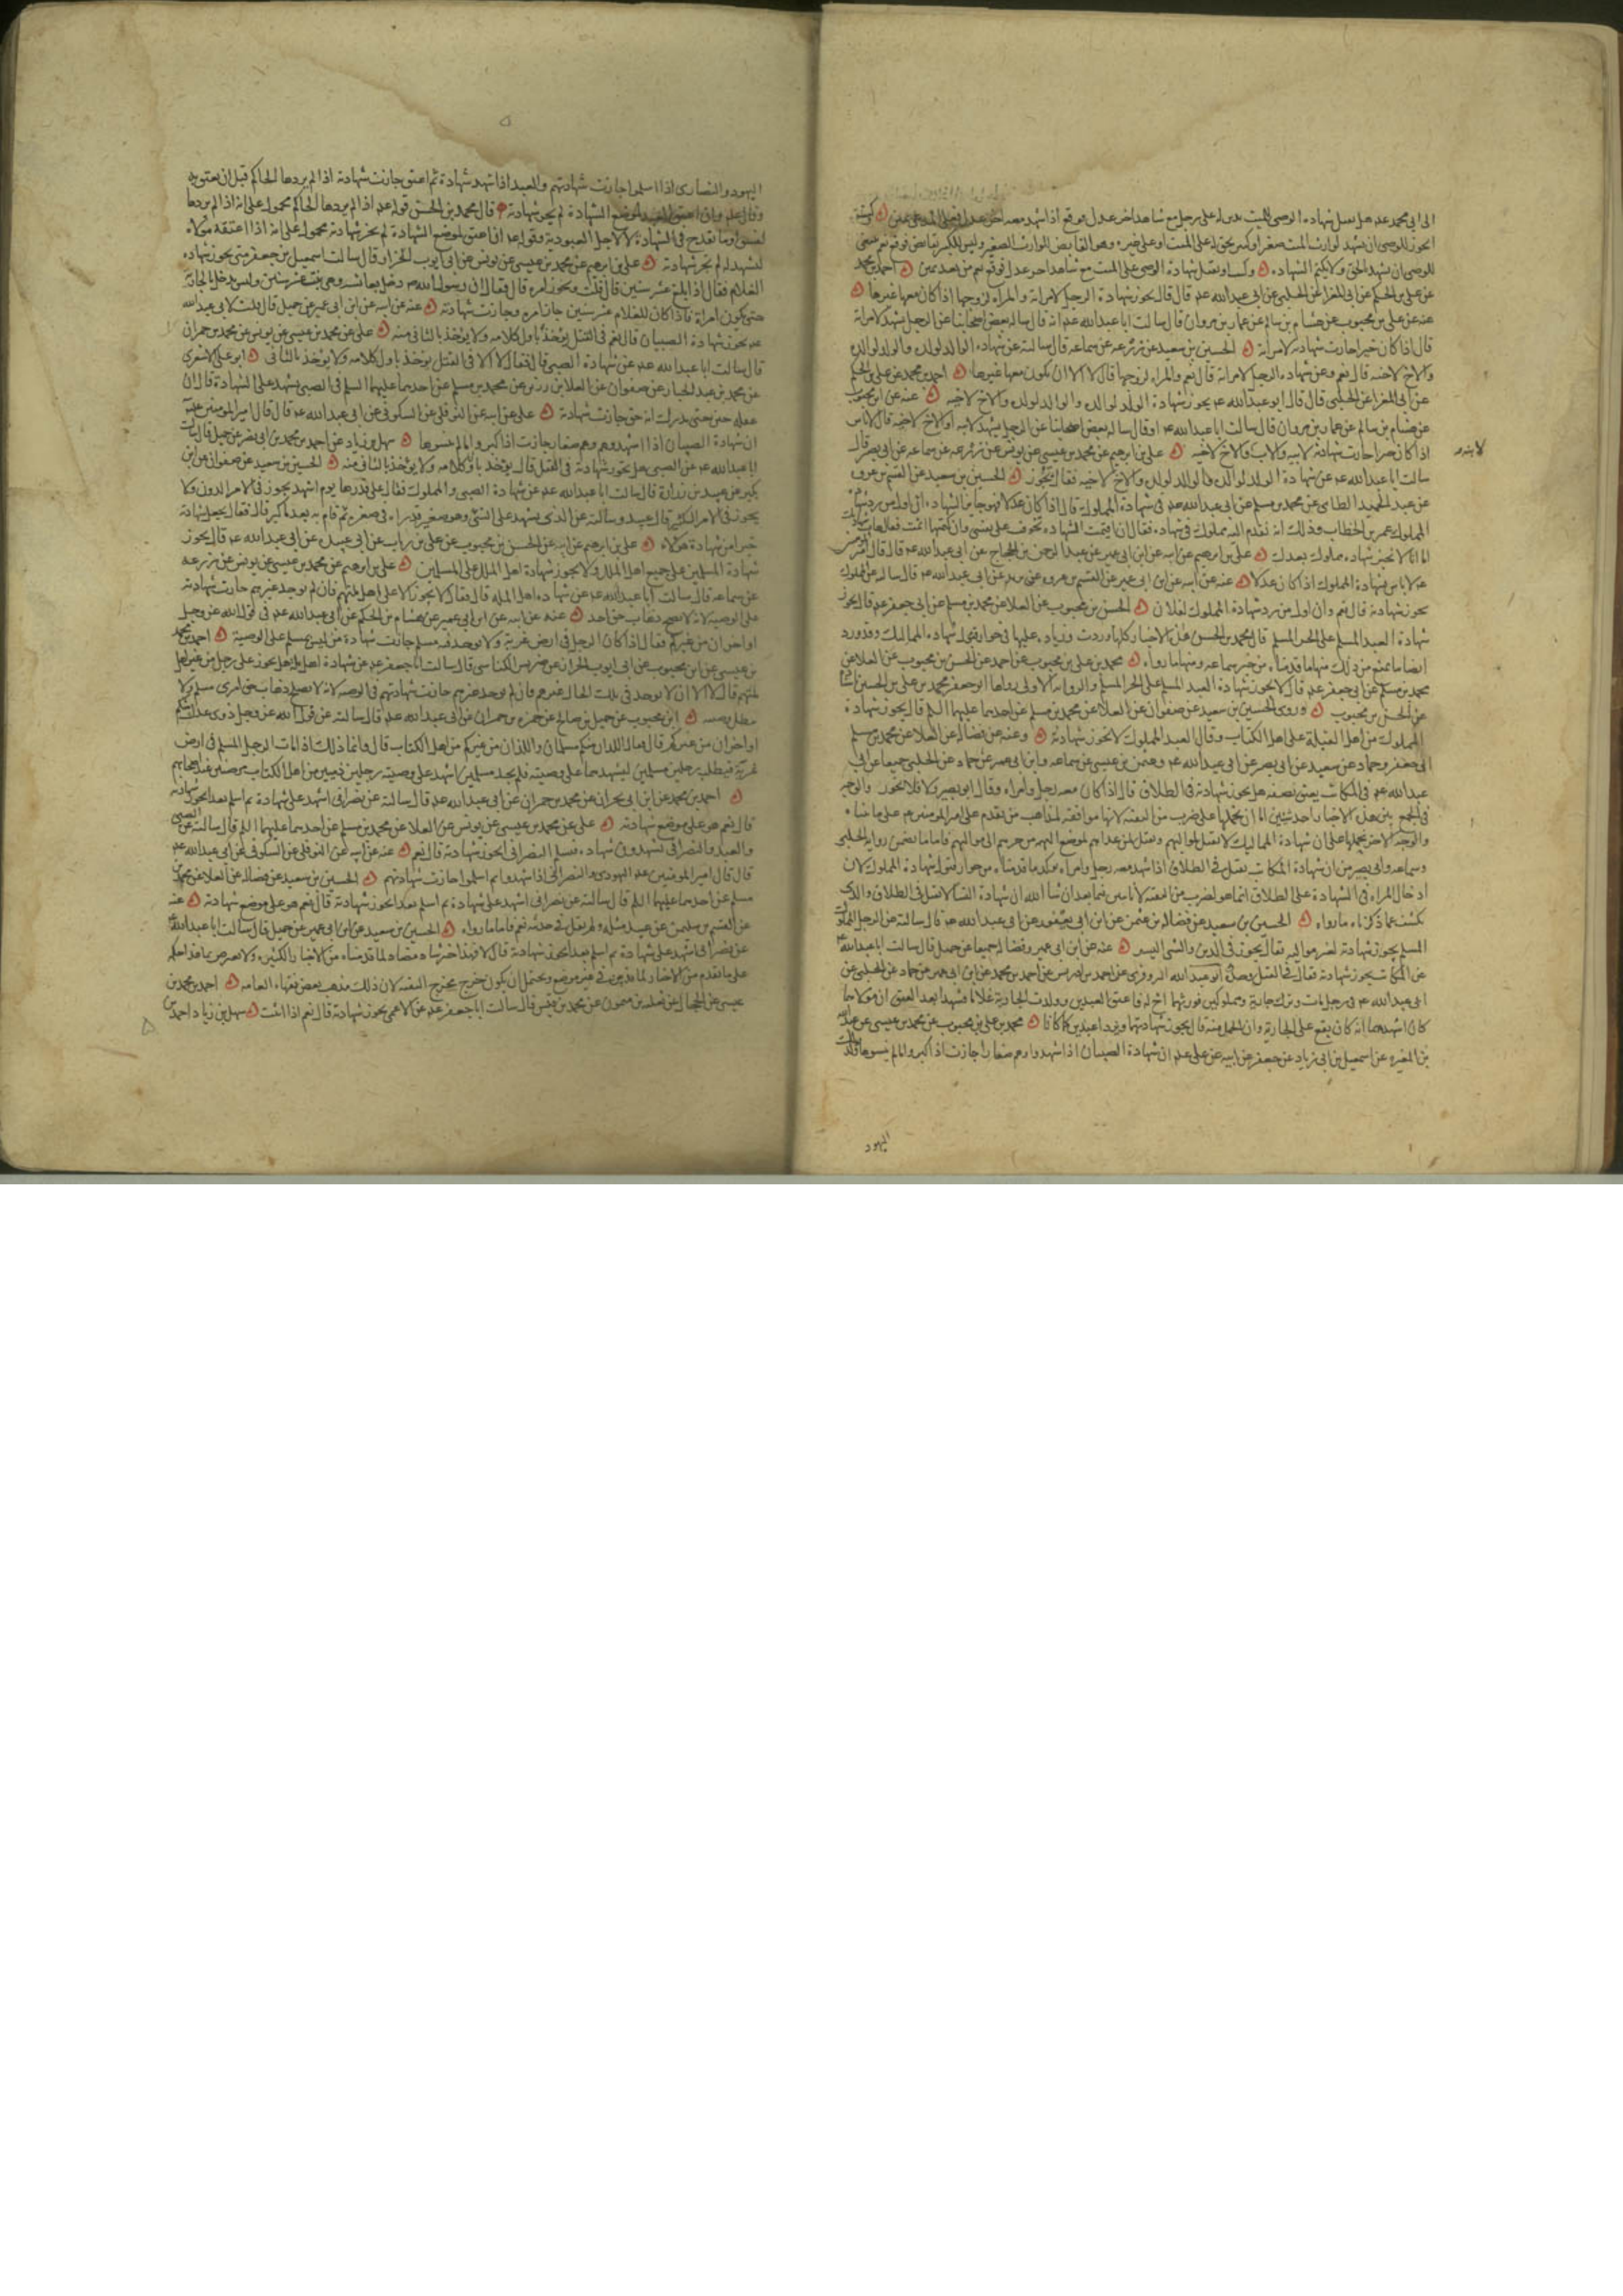 الى ابى محمد عه هل تقبل شهادة الوصى للميت بدين له على رجل مع شاهد اخر عدل فوقع اذا شهد معه اخر عدل فعلى المدعى يمين وكتبت
ايجوز للوصى ان يشهد لوارث الميت صغيرا وكبير بحق له على الميت او على غيره وهو القابض للوارث الصغير وليس للكبير بقابض فوقع نعم ينبغى
للوصى ان يشهد بالحق ولا يكتم الشهادة وكتبت او تقبل شهادة الوصى على الميت مع شاهد اخر عدل فوقع نعم من بعد يمين احمد بن محمد
عن على بن الحكم عن ابى المغرا عن الحلبى عن ابى عبدالله عه قال قال يجوز شهادة الرجل لامراته والمراة لزوجها اذا كان معها غيرها
عنه عن على بن محبوب عن هشام بن سالم عن عمار بن مروان قال سالت ابا عبدالله عه او قال ساله بعض اصحابنا عن الرجل يشهد لامراته
قال اذا كان خيرا جازت شهادته لامراته الحسين بن سعيد عن زرعه عن سماعه قال سالته عن شهادة الوالد لولده والولد لوالده
والاخ لاخيه قال نعم وعن شهادة الرجل لامراته قال نعم والمراة لزوجها قال لا الا ان يكون معها غيرها احمد بن محمد عن على بن الحكم
عن ابى المغرا عن الحلبى قال قال ابو عبدالله عه يجوز شهادة الولد لوالده والوالد لولده والاخ لاخيه عنه عن ابن محبوب
عن هشام بن سالم عن عمار بن مروان قال سالت ابا عبدالله عه او قال ساله بعض اصحابنا عن الرجل يشهد لابيه او الاخ لاخيه قال لا باس
اذا كان خيرا جازت شهادته لابيه والاب والاخ لاخيه على بن ابرهيم عن محمد بن عيسى عن يونس عن زرعه عن سماعه عن ابى بصير قال
سالت ابا عبدالله عه عن شهادة الولد لوالده والوالد لولده والاخ لاخيه فقال يجوز الحسين بن سعيد عن القسم بن عروه
عن عبد الحميد الطائى عن محمد بن مسلم عن ابى عبدالله عه فى شهادة المملوك قال اذا كان عدلا فهو جايز الشهادة ان اول من رد شهادة
المملوك عمر بن الخطاب وذلك انه تقدم اليه مملوك فى شهادة فقال ان اقمت الشهادة تخوف على نفسى وان كتمتها اثمت فقال هات شهادتك
اما انا لا نجيز شهادة مملوك بعدك على بن ابرهيم عن ابيه عن ابن ابى عمير عن عبد الرحمن بن الحجاج عن ابى عبدالله عه قال قال امير المومنين
عه لا باس بشهادة المملوك اذا كان عدلا عنه عن ابيه عن ابن ابى عمير عن القسم بن عروه عن بريد عن ابى عبدالله عه قال سالته عن المملوك
يجوز شهادته قال نعم وان اول من رد شهادة المملوك لفلان الحسن بن محبوب عن العلا عن محمد بن مسلم عن ابى جعفر عه قال يجوز
شهادة العبد المسلم على الحر المسلم قال محمد بن الحسن هذه الاخبار كلها وردت وزيادة عليها فى جواز قبول شهادة المماليك وقد ورد
ايضا ما يمنع من ذلك منها ما قدمناه من خبر سماعه ومنها ما رواه محمد بن على بن محبوب عن احمد عن الحسن بن محبوب عن العلا عن
محمد بن مسلم عن ابى جعفر عه قال لا يجوز شهادة العبد المسلم على الحر المسلم والروايه الاولى رواها ابو جعفر محمد بن على بن الحسين
عن الحسن بن محبوب وروى الحسين بن سعيد عن صفوان عن العلا عن محمد بن مسلم عن احدهما عليهما السلم قال يجوز شهادة
المملوك من اهل القبلة على اهل الكتاب وقال العبد المملوك لا يجوز شهادته وعنه عن فضالة عن العلا عن محمد بن مسلم
ابى جعفر وحماد عن سعيد عن ابى بصير عن ابى عبدالله عه وعثمن بن عيسى عن سماعه وابن ابى عمير عن حماد عن الحلبى جميعا عن ابى
عبدالله عه فى المكاتب يعتق نصفه هل يجوز شهادته فى الطلاق قال اذا كان معه رجل وامراة وقال ابو بصير والا فلا تجوز والوجه
فى الجمع بين هذه الاخبار احد شيئين اما ان نحملها على ضرب من التقيه لانها موافقه لمذاهب من تقدم على امير المومنين عه على ما بيناه
والوجه الاخر نحملها على ان شهادة المماليك لا تقبل لمواليهم وتقبل لمن عداهم لموضع التهمه من جرهم الى مواليهم فاما ما تضمن رواية الحلبى
وسماعه وابى بصير من ان شهادة المكاتب تقبل فى الطلاق اذا شهد معه رجل وامراة يوكد ما قدمناه من جواز قبول شهادة المملوك لان
ادخال المراة فى الشهادة على الطلاق انما هو لضرب من التقيه لانا سنبين فيما بعد ان شا الله ان شهادة النسا لا تقبل فى الطلاق والذى
يكشف عما ذكرناه ما رواه الحسين بن سعيد عن فضالة بن عثمن عن ابن ابى يعفور عن ابى عبدالله عه قال سالته عن الرجل المملوك
المسلم يجوز شهادته لغير مواليه فقال يجوز فى الدين والشى اليسير عنه عن ابن ابى عمير وفضاله جميعا عن جميل قال سالت ابا عبدالله عه
عن المكاتب يجوز شهادته فقال فى القتل وحده ابو عبدالله البزوفرى عن احمد بن ادريس عن احمد بن محمد عن ابن ابى عمير عن حماد عن الحلبى عن
ابى عبدالله عه فى رجل مات وترك جارية ومملوكين فورثهما اخ له فاعتق العبدين وولدت الجارية غلاما فشهدا بعد العتق ان مولاهما
كان اشهدهما انه كان يقع على الجارية وان الحمل منه قال يجوز شهادتهما ويردا عبدين كما كانا محمد بن على بن محبوب عن محمد بن عيسى عن عبدالله
بن المغيره عن اسمعيل بن ابى زياد عن جعفر عن ابيه عن على عه ان شهادة الصبيان اذا شهدوا وهم صغار جازت اذا كبروا ما لم ينسوها وكذلك
اليهود
اليهود والنصارى اذا اسلموا جازت شهادتهم والعبد اذا شهد شهادة ثم اعتق جازت شهادته اذا لم يردها الحاكم قبل ان يعتق
وقال عه وان اعتق العبد لموضع الشهادة لم يجز شهادته قال محمد بن الحسن قوله عه اذا لم يردها الحاكم محمول على انه اذا لم يردها
لفسق او ما يقدح فى الشهادة لا لاجل العبودية وقوله عه اذا اعتق لموضع الشهادة لم يجز شهادته محمول على انه اذا اعتقه مولاه
ليشهد له لم تجز شهادته على بن ابرهيم عن محمد بن عيسى عن يونس عن ابى ايوب الخزاز قال سالت اسمعيل بن جعفر متى يجوز شهادة
الغلام فقال اذا بلغ عشر سنين قال قلت ويجوز امره قال فقال ان رسول الله ص دخل بعائشه وهى بنت عشر سنين وليس يدخل بالجارية
حتى يكون امراة فاذا كان للغلام عشر سنين جاز امره وجازت شهادته عنه عن ابيه عن ابن ابى عمير عن جميل قال قلت لابى عبدالله
عه يجوز شهادة الصبيان قال نعم فى القتل يؤخذ باول كلامه ولا يؤخذ بالثانى منه على عن محمد بن عيسى عن يونس عن محمد بن حمران
قال سالت ابا عبدالله عه عن شهادة الصبى قال فقال لا الا فى القتل يؤخذ باول كلامه ولا يؤخذ بالثانى ابو على الاشعرى
عن محمد بن عبد الجبار عن صفوان عن العلا بن رزين عن محمد بن مسلم عن احدهما عليهما السلم فى الصبى يشهد على الشهادة قال ان
عقله حين حتى يدرك انه حق جازت شهادته على عن ابيه عن النوفلى عن السكونى عن ابى عبدالله عه قال قال امير المومنين عه
ان شهادة الصبيان اذا اشهدوهم وهم صغار جازت اذا كبروا ما لم ينسوها سهل بن زياد عن احمد بن محمد بن ابى نصر عن جميل قال سالت
ابا عبدالله عه عن الصبى هل يجوز شهادته فى القتل قال يؤخذ باول كلامه ولا يؤخذ بالثانى منه الحسين بن سعيد عن صفوان عن ابن
بكير عن عبيد بن زرارة قال سالت ابا عبدالله عه عن شهادة الصبى والمملوك فقال على قدرها يوم اشهد يجوز فى الامر الدون ولا
يجوز فى الامر الكثير قال عبيد وسالته عن الذى يشهد على الشى وهو صغير قد راه فى صغره ثم قام به بعد ما كبر قال فقال يجعل شهادته
خيرا من شهادة هؤلاء على بن ابرهيم عن ابيه عن الحسن بن محبوب عن على بن رئاب عن ابى عبيده عن ابى عبدالله عه قال يجوز
شهادة المسلمين على جميع اهل الملل ولا يجوز شهادة اهل الملل على المسلمين على بن ابرهيم عن محمد بن عيسى عن يونس عن زرعه
عن سماعه قال سالت ابا عبدالله عه عن شهادة اهل الملة قال فقال لا يجوز الا على اهل ملتهم فان لم يوجد غيرهم جازت شهادتهم
على الوصية لانه لا يصلح ذهاب حق احد عنه عن ابيه عن ابن ابى عمير عن هشام بن الحكم عن ابى عبدالله عه فى قول الله عز وجل
او اخران من غيركم فقال اذا كان الرجل فى ارض غربة ولا يوجد فيه مسلم جازت شهادة من ليس بمسلم على الوصية احمد بن محمد
بن عيسى عن ابن محبوب عن ابى ايوب الخزاز عن ضريس الكناسى قال سالت ابا جعفر عه عن شهادة اهل ملة هل يجوز على رجل من غير اهل
ملتهم قال لا الا ان لا يوجد فى تلك الحال غيرهم فان لم يوجد غيرهم جازت شهادتهم فى الوصيه لانه لا يصلح ذهاب حق امرى مسلم ولا
تبطل وصيته ابن محبوب عن جميل بن صالح عن حمزه بن حمران عن ابى عبدالله عه قال سالته عن قول الله عز وجل ذوى عدل منكم
او اخران من غيركم قال فقال اللذان منكم مسلمان واللذان من غيركم من اهل الكتاب قال وانما ذلك اذا مات الرجل المسلم فى ارض
غربة فيطلب رجلين مسلمين ليشهدهما على وصيته فلم يجد مسلمين اشهد على وصيته رجلين ذميين من اهل الكتاب مرضيين عند اصحابهم
احمد بن محمد عن ابن ابى نجران عن محمد بن حمران عن ابى عبدالله عه قال سالته عن نصرانى اشهد على شهادة ثم اسلم بعد ايجوز شهادته
قال نعم هو على موضع شهادته على عن محمد بن عيسى عن يونس عن العلا عن محمد بن مسلم عن احدهما عليهما السلم قال سالته عن الصبى
والعبد والنصرانى يشهدون شهادة فيسلم النصرانى ايجوز شهادته قال نعم عنه عن ابيه عن النوفلى عن السكونى عن ابى عبدالله عه
قال قال امير المومنين عه اليهودى والنصرانى اذا شهدوا ثم اسلموا جازت شهادتهم الحسين بن سعيد عن فضالة عن العلا عن محمد بن
مسلم عن احدهما عليهما السلم قال سالته عن نصرانى اشهد على شهادة ثم اسلم بعد ايجوز شهادته قال نعم هو على موضع شهادته عنه
عن القسم بن سليمن عن عبيد مثله ولم يقل فى حديثه نعم فاما ما رواه الحسين بن سعيد عن ابن ابى عمير عن جميل قال سالت ابا عبدالله عه
عن نصرانى اشهد على شهادة ثم اسلم بعد ايجوز شهادته قال لا فهذا خبر شاذ مضاد لما قدمناه من الاخبار الكثيره ولا يعترض بما هذا حكمه
على ما تقدم من الاخبار لما قد بين فى غير موضع ويحتمل ان يكون خرج مخرج التقيه لان ذلك مذهب بعض فقهاء العامه احمد بن محمد بن
عيسى عن الحجال عن ثعلبه بن ميمون عن محمد بن قيس قال سالت ابا جعفر عه عن الاعمى يجوز شهادته قال نعم اذا اثبت سهل بن زياد احمد بن